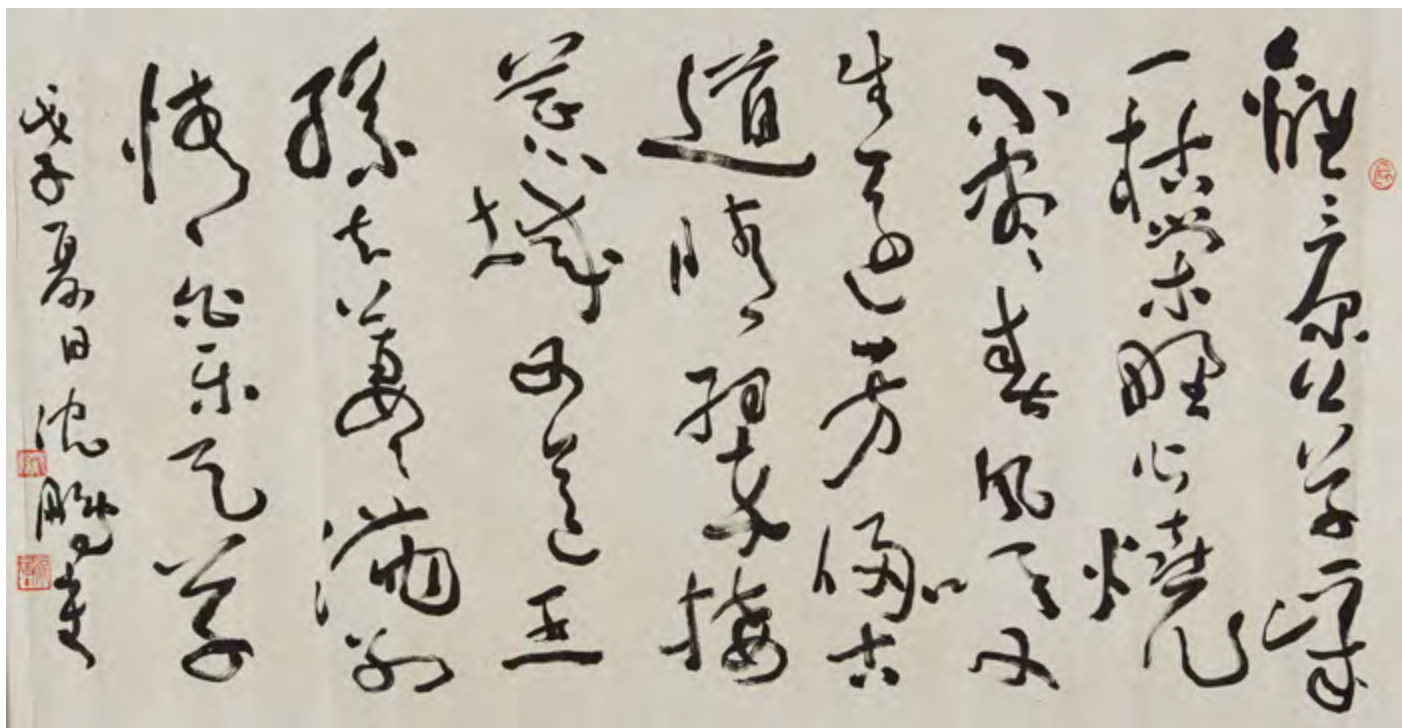 離離原上草一歲
一枯榮野火燒
不盡春風吹又
生遠芳侵古
道晴翠接
荒城又送王
孫去萋萋滿別
情樂天草
戊子夏日沈鵬書